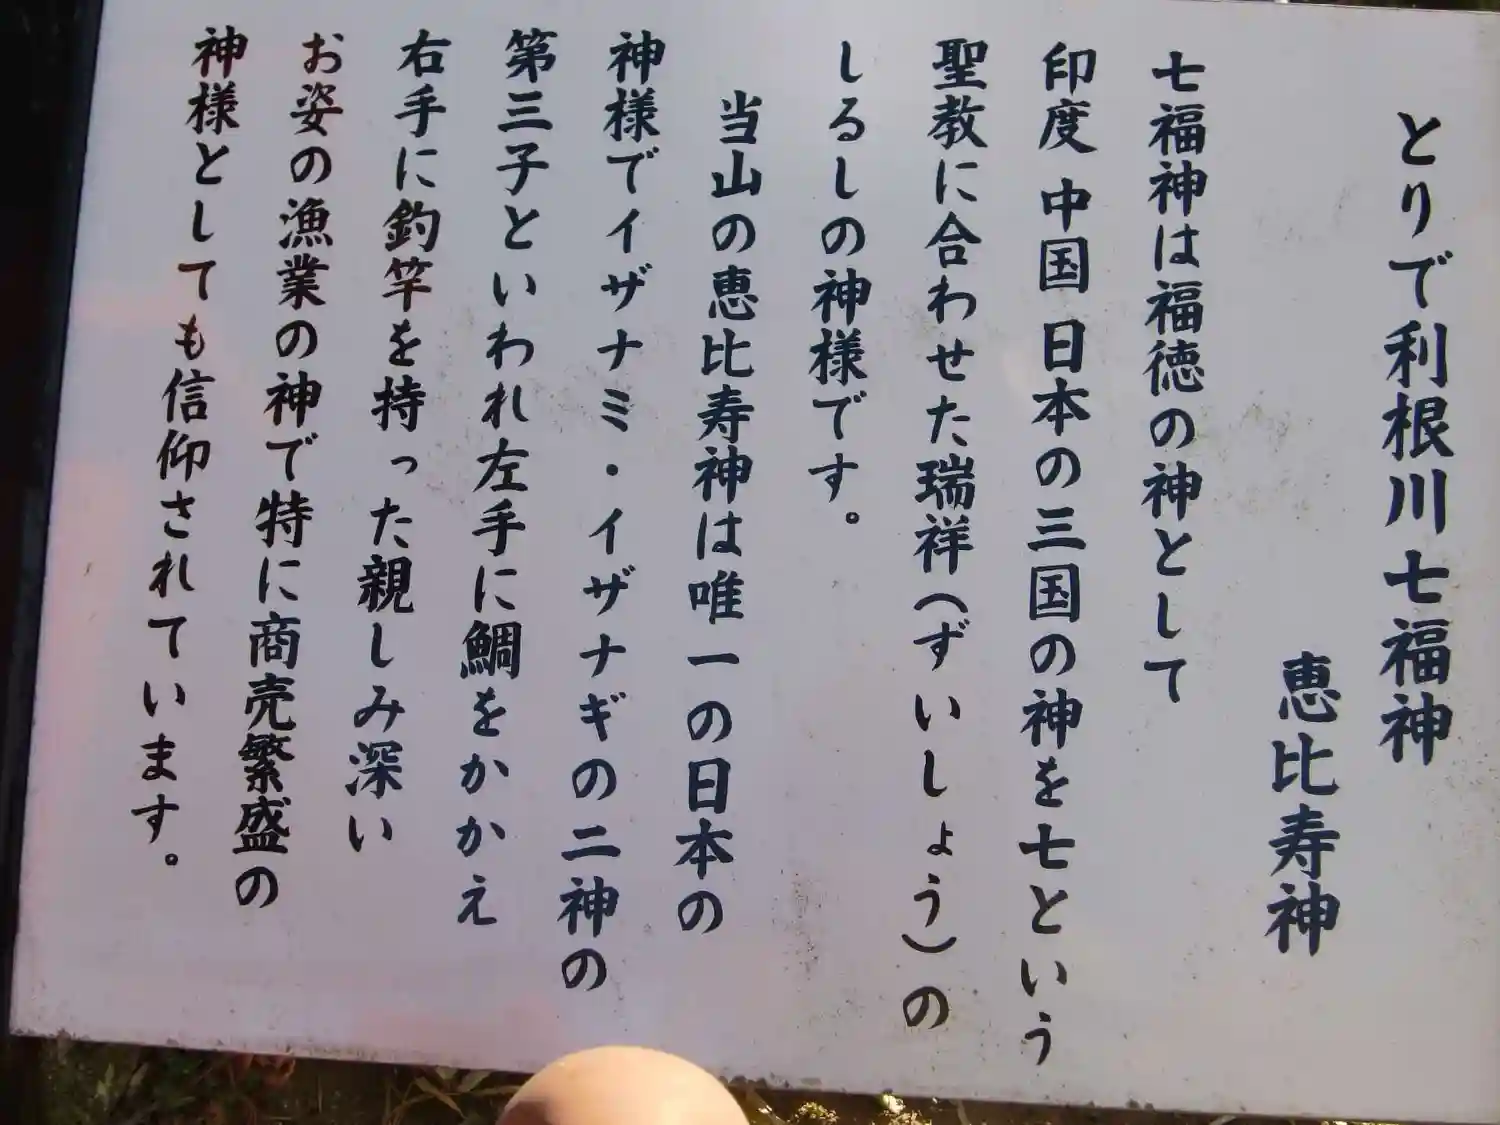 とりで利根川七福神
恵比寿神
七福神は福徳の神として
印度 中国 日本の三国の神を七という
聖教に合わせた瑞祥(ずいしょう)の
しるしの神様です。
当山の恵比寿神は唯一の日本の
神様でイザナミ・イザナギの二神の
第三子といわれ左手に鯛をかかえ
右手に釣竿を持った親しみ深い
お姿の漁業の神で特に商売繁盛の
神様としても信仰されています。